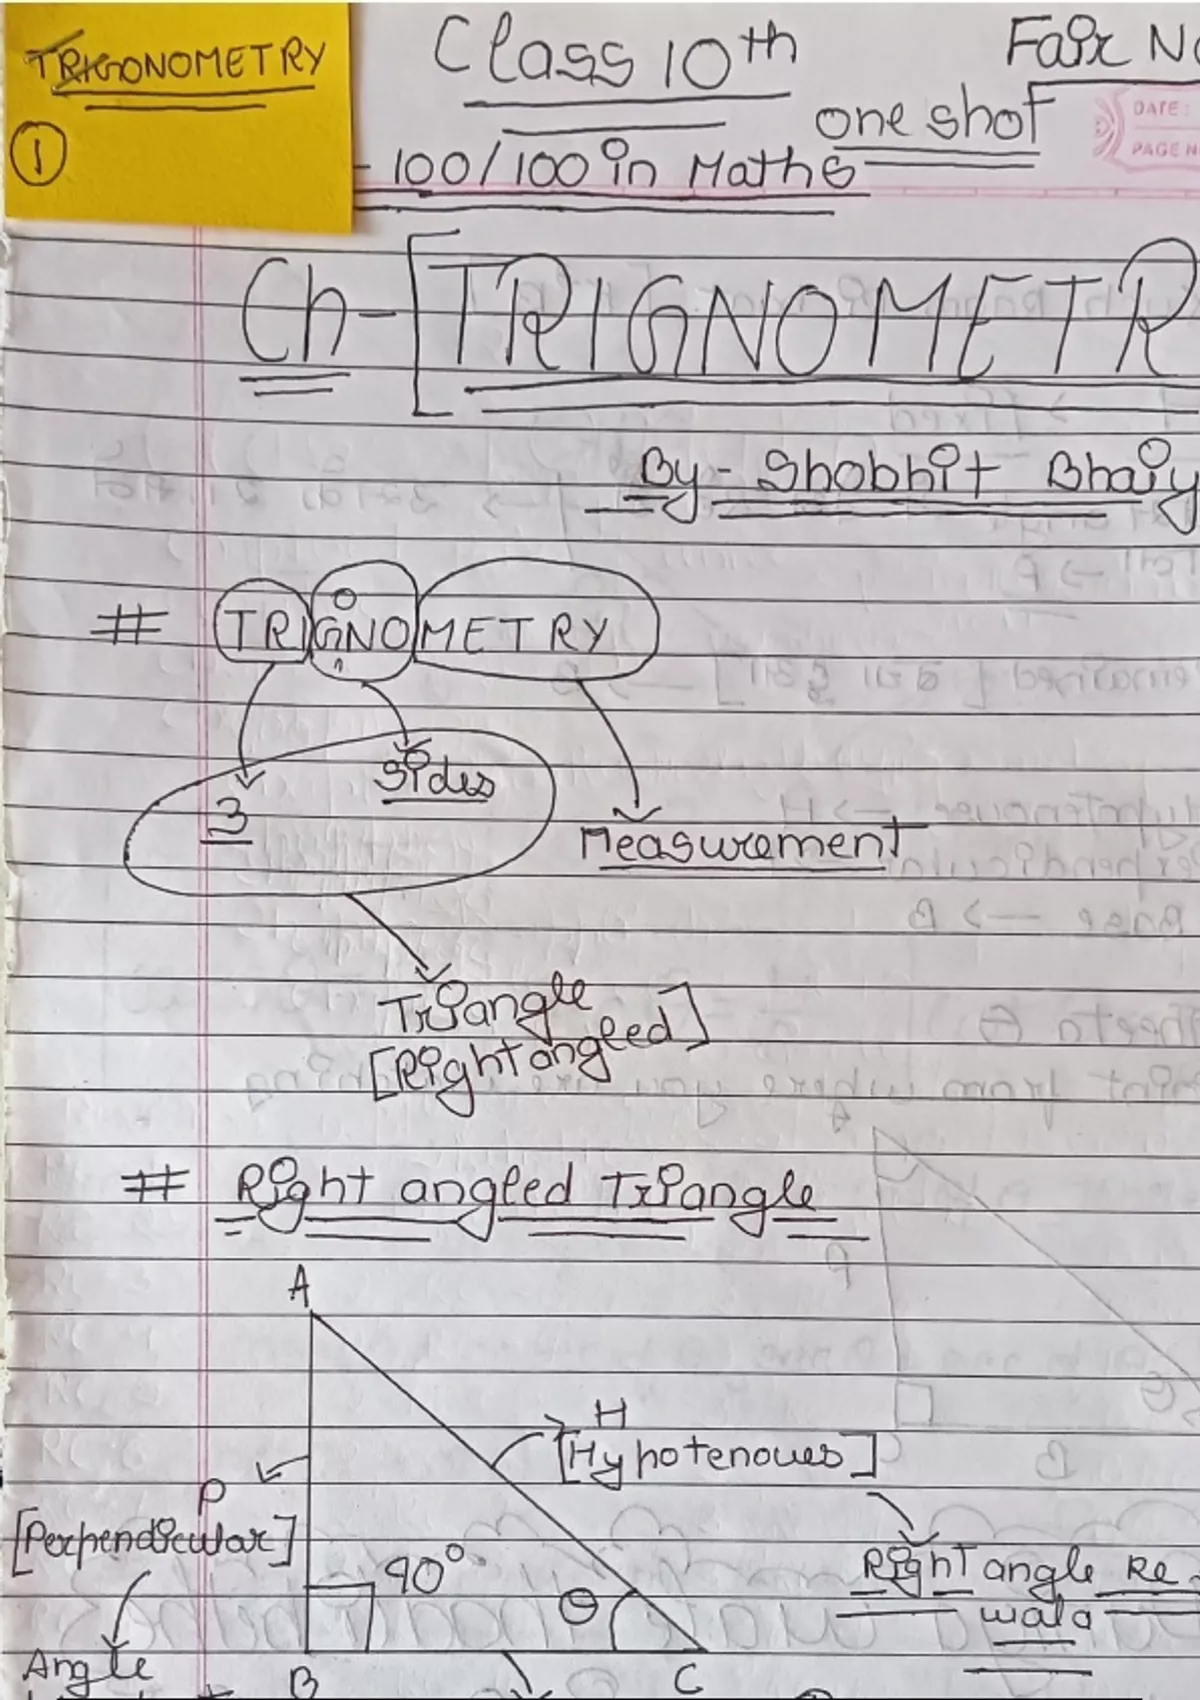 TRIGONOMETRY
1
Class 10th
Fair No
one shot
DATE:
PAGE N
- 100/100 in Maths
Ch-[TRIGNOMETR
By- Shobhit Bhaiy
# TRIGNOMETRY
3
Sides
Measurement
Triangle
[Right angled]
# Right angled Triangle
A
H
[Hypotenoues]
P
[Perpendicular]
90°
θ
Right angle Ke
wala
Angle
B
C